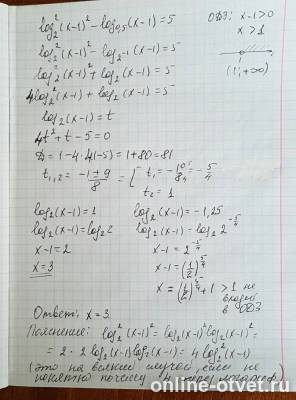 log₂²(x-1)² - log₀,₅(x-1) = 5
ОДЗ: x-1>0
x>1
log₂²(x-1)² - log₂₋₁(x-1) = 5
log₂²(x-1)² + log₂(x-1) = 5
1
(1; +∞)
4log₂²(x-1) + log₂(x-1) = 5
log₂(x-1) = t
4t² + t - 5 = 0
D = 1-4·4(-5) = 1+80 = 81
t₁,₂ = (-1±9)/8 = [ t₁ = -10/8 = -5/4
t₂ = 1
log₂(x-1) = 1
log₂(x-1) = -1,25
log₂(x-1) = log₂2
log₂(x-1) = log₂2^(-5/4)
x-1 = 2
x-1 = 2^(-5/4)
x = 3
x-1 = (1/2)^(5/4)
x = (1/2)^(5/4) + 1 >1 не
входит
в ОДЗ
Ответ: x = 3.
Пояснение: log₂²(x-1)² = log₂(x-1)² log₂(x-1)² =
= 2 · 2 log₂(x-1) log₂(x-1) = 4 log₂²(x-1)
(это на всякий случай, если не
понятно почему 4 перед логариф.)
online-otvet.ru